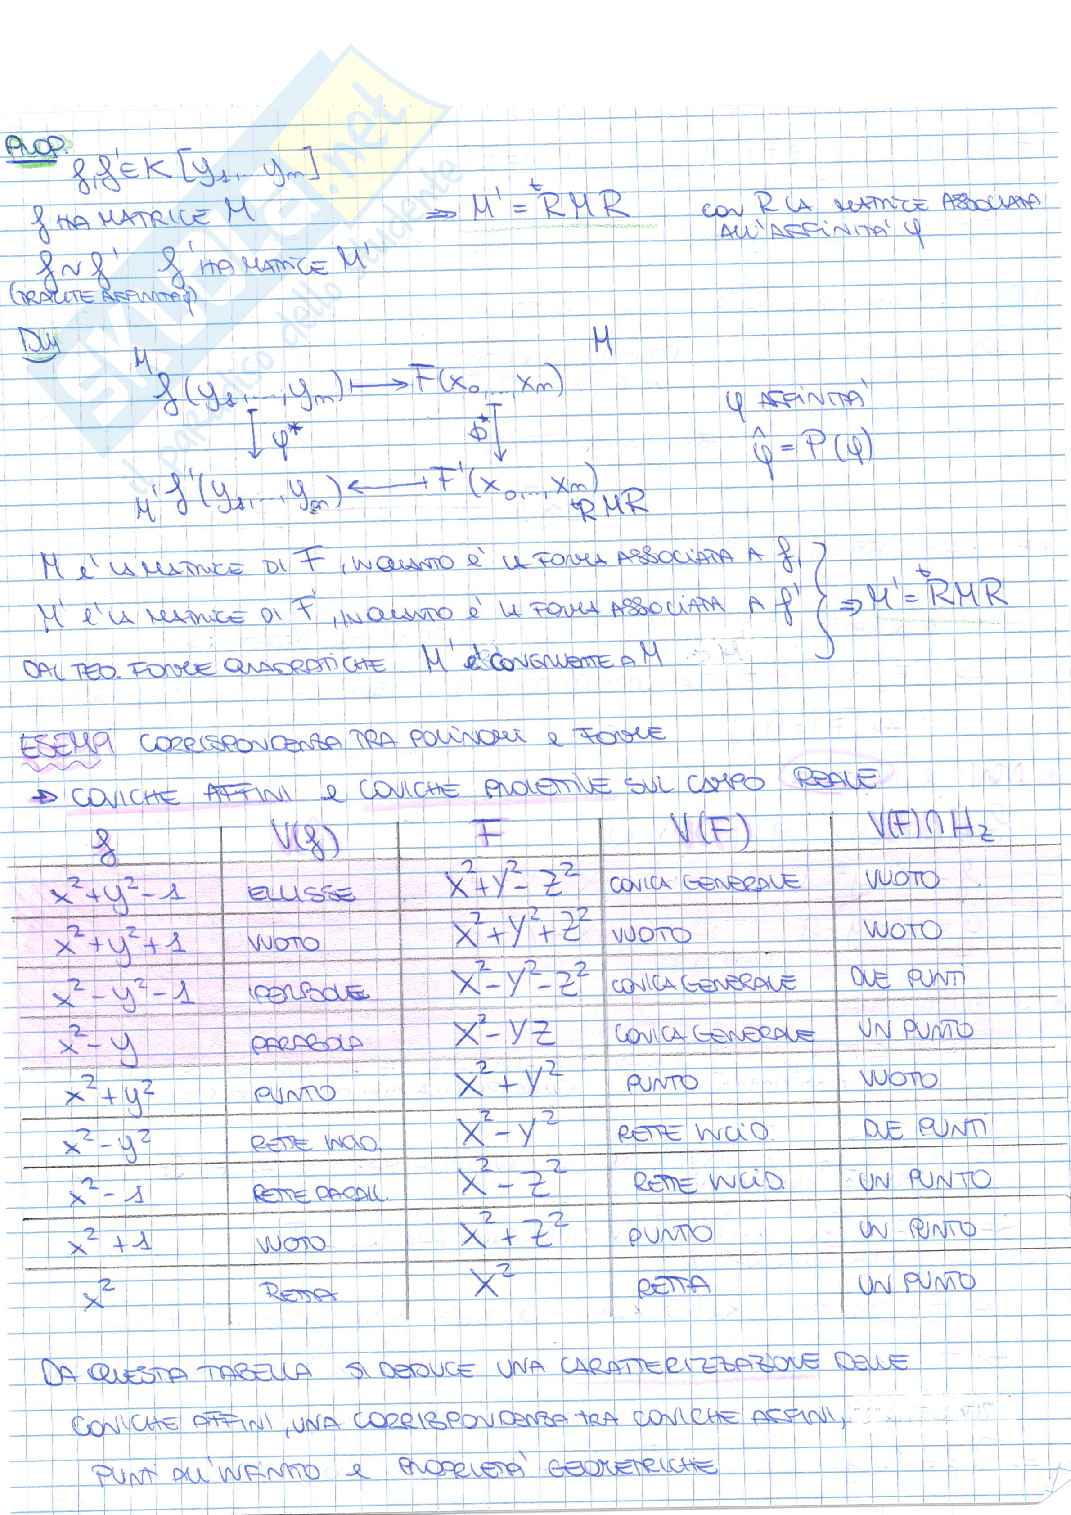 PROP.
f,f' ∈ K[y₁,...,yₙ]
f HA MATRICE M ⇒ M' = ᵗRMR con R LA MATRICE ASSOCIATA
ALL'AFFINITÀ φ
f ~ f' f' HA MATRICE M'
(TRAMITE AFFINITÀ φ)
DIM
M M
f(y₁,...,yₙ) ⟼ F(x₀,...,xₙ)
φ AFFINITÀ
↓ φ* ↓
φ̂ = P(φ)
f'(y₁,...,yₙ) ⟵ F'(x₀,...,xₙ)
M' ᵗRMR
M È LA MATRICE DI F, IN QUANTO È LA FORMA ASSOCIATA A f,
M' È LA MATRICE DI F', IN QUANTO È LA FORMA ASSOCIATA A f' ⇒ M' = ᵗRMR
DAL TEO. FORME QUADRATICHE M' è CONGRUENTE A M
ESEMPI CORRISPONDENZA TRA POLINOMI e FORME
→ CONICHE AFFINI e CONICHE PROIETTIVE SUL CAMPO REALE
f V(f) F V(F) V(F)∩H₂
x²+y²-1 ELLISSE X²+Y²-Z² CONICA GENERALE VUOTO
x²+y²+1 VUOTO X²+Y²+Z² VUOTO VUOTO
x²-y²-1 IPERBOLE X²-Y²-Z² CONICA GENERALE DUE PUNTI
x²-y PARABOLA X²-YZ CONICA GENERALE UN PUNTO
x²+y² PUNTO X²+Y² PUNTO VUOTO
x²-y² RETTE INCID. X²-Y² RETTE INCID. DUE PUNTI
x²-1 RETTE PARALL. X²-Z² RETTE INCID. UN PUNTO
x²+1 VUOTO X²+Z² PUNTO UN PUNTO
x² RETTA X² RETTA UN PUNTO
DA QUESTA TABELLA SI DEDUCE UNA CARATTERIZZAZIONE DELLE
CONICHE AFFINI, UNA CORRISPONDENZA TRA CONICHE AFFINI,
PUNTI ALL'INFINITO e PROPRIETÀ GEOMETRICHE